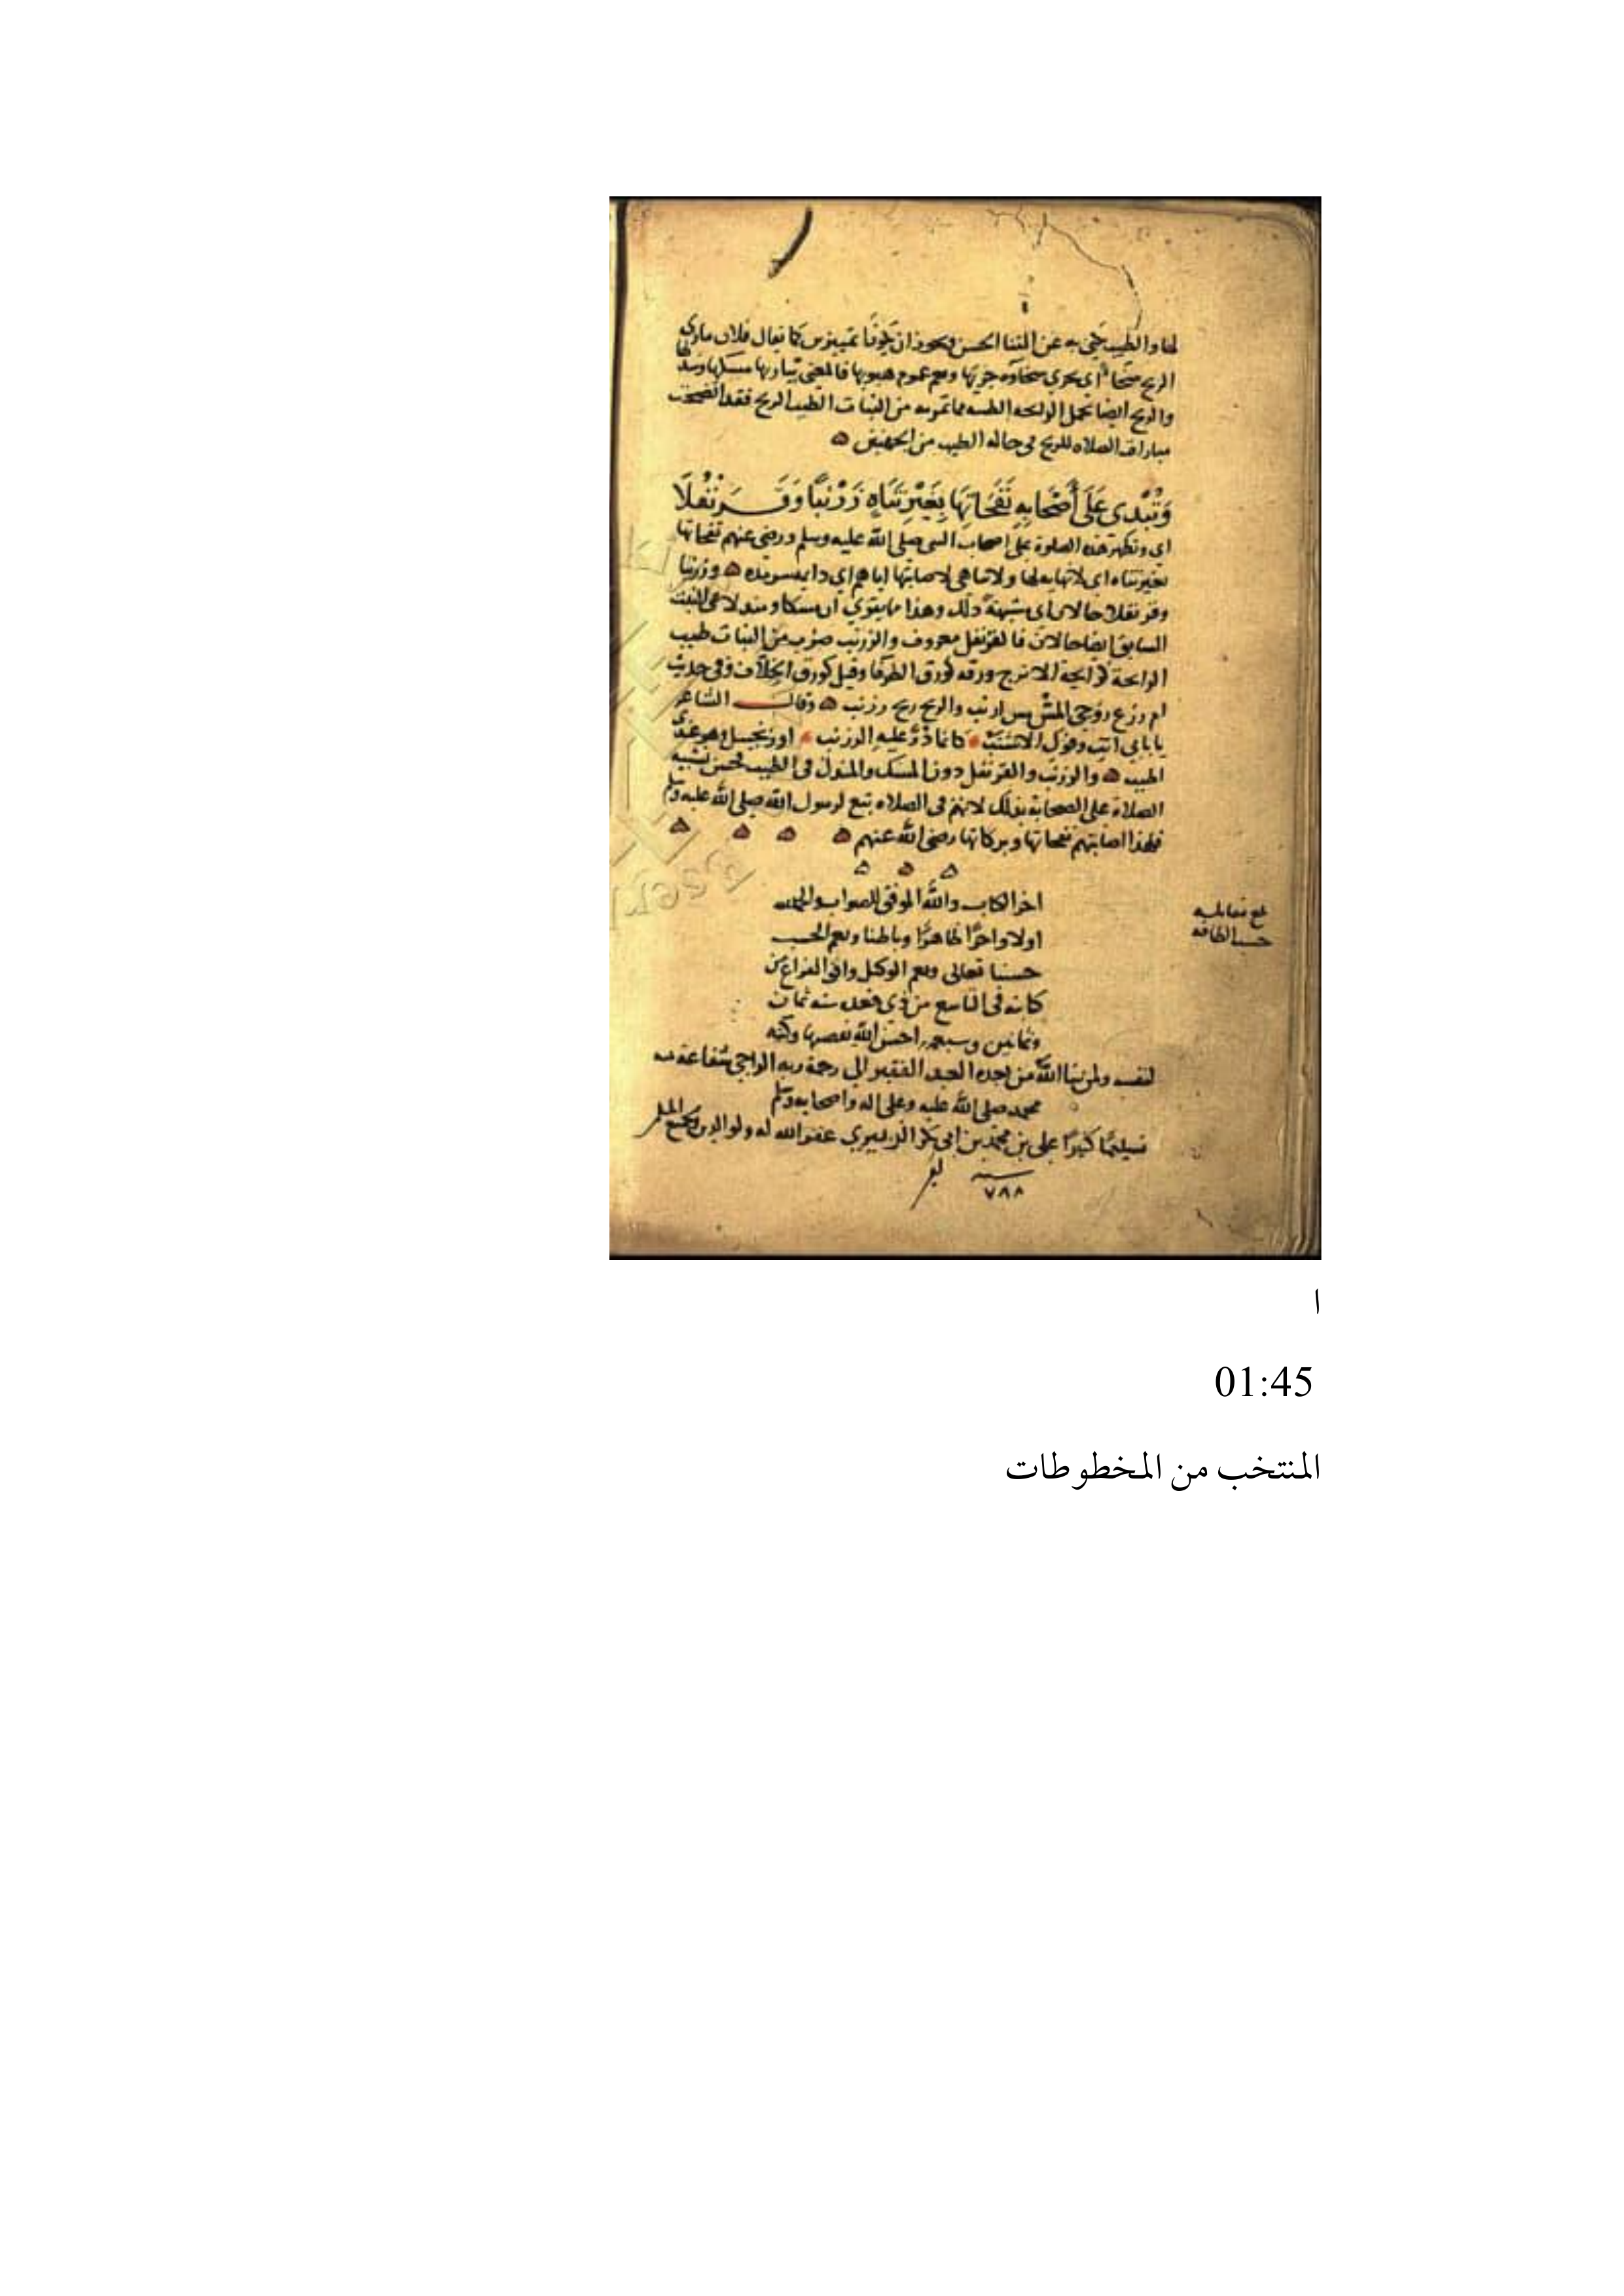 لها والطيب يكنى به عن الثناء الحسن ويجوز ان يكونا تمييزين كما يقال فلان يبارى
الريح سخا اي يجري سخاوه جريها ويعم عموم هبوبها فالمعنى تباريها
والريح ايضا تحمل الرايحه الطيبه مما تمر به من النبات الطيب الريح فقد اتضحت
مباراه الصلاه للريح في حاله الطيب من الجهتين
وَتُبْدِى عَلَى أَصْحَابِهِ نَفَحَاتِهَا بِغَيْرِ تَنَاهٍ زَرْنَبًا وَقَرَنْفُلَا
اى وتظهر هذه الصلوة على اصحاب النبي صلى الله عليه وسلم ورضى عنهم نفحاتها
بغير تناه اى لا نهايه لها ولا تناهي لاصابتها اياهم اي دايمه وزرنبا
وقرنفلا حالان اى مشبهة ذلك وهذا مما يقوي ان مسكا ومندلا في البيت
السابق ايضا حالان فالقرنفل معروف والزرنب ضرب من النبات طيب
الرايحة كرايحة الاترج ورقه كورق الطرفا وقيل كورق الخلاف وفى حديث
ام زرع زوجي المس مس ارنب والريح ريح زرنب وقال الشاعر
يا بابي انت وفوك الاشنب كانما ذر عليه الزرنب او زنجبيل وهو عندى
اطيب والزرنب والقرنفل دون المسك والمندل في الطيب فحسن تشبيه
الصلاة على الصحابة بذلك لانهم في الصلاه تبع لرسول الله صلى الله عليه وسلم
فلهذا اصابتهم نفحاتها وبركاتها رضى الله عنهم
اخر الكتاب والله الموفق للصواب والحمد لله
اولا واخرا ظاهرا وباطنا ونعم الحسب
حسبنا تعالى ونعم الوكيل وافق الفراغ من
كتابته فى التاسع من ذي قعده سنه ثمان
وثمانين وسبعمه احسن الله وكتبه
لنفسه ولمن شا الله من بعده العبد الفقير الى رحمة ربه الراجي شفاعة نبيه
محمد صلى الله عليه وعلى اله واصحابه وسلم
تسليما كثيرا على بن محمد بن ابى بكر غفر الله له ولوالديه ولجميع المسلمين
سنه ٧٨٨
بلغ مقابله
حسب الطاقه
ا
01:45
المنتخب من المخطوطات